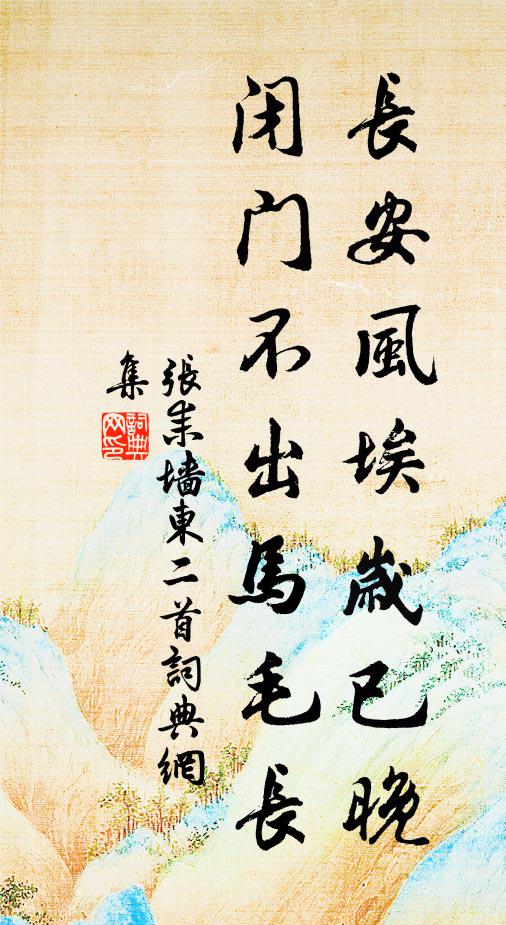 長安風埃歲已晚
闭门不出馬毛長
張耒墙東二首詞典網
集
詞典
网印